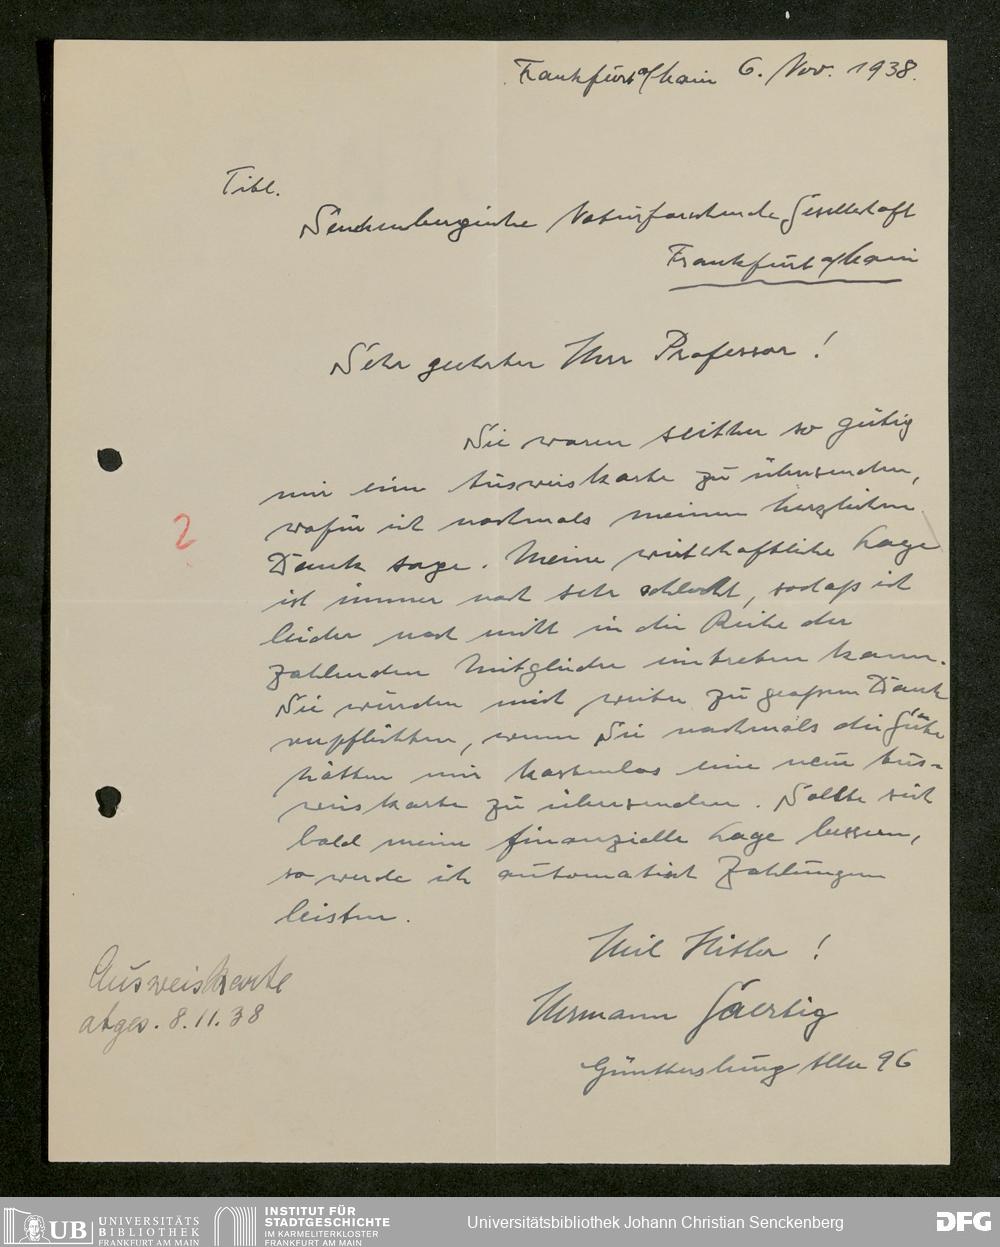 Frankfurt a/Main 6. Nov. 1938.
Titl.
Senckenbergische Naturforschende Gesellschaft
Frankfurt a/Main
Sehr geehrter Herr Professor !
Sie waren seither so gütig
mir eine Ausweiskarte zu übersenden,
wofür ich nochmals meinen herzlichen
Dank sage. Meine wirtschaftliche Lage
ist immer noch sehr schlecht, sodaß ich
leider noch nicht in die Reihe der
zahlenden Mitglieder eintreten kann.
Sie würden mich weiter zu großem Dank
verpflichten, wenn Sie nochmals die Güte
hätten mir kostenlos eine neue Aus-
weiskarte zu übersenden. Sollte sich
bald meine finanzielle Lage bessern,
so werde ich automatisch Zahlungen
leisten.
Heil Hitler !
Hermann Gaertig
Günthersburg Allee 96
2
Ausweiskarte
abges. 8.11.38
UB UNIVERSITÄTS
BIBLIOTHEK
FRANKFURT AM MAIN
INSTITUT FÜR
STADTGESCHICHTE
IM KARMELITERKLOSTER
FRANKFURT AM MAIN
Universitätsbibliothek Johann Christian Senckenberg
DFG